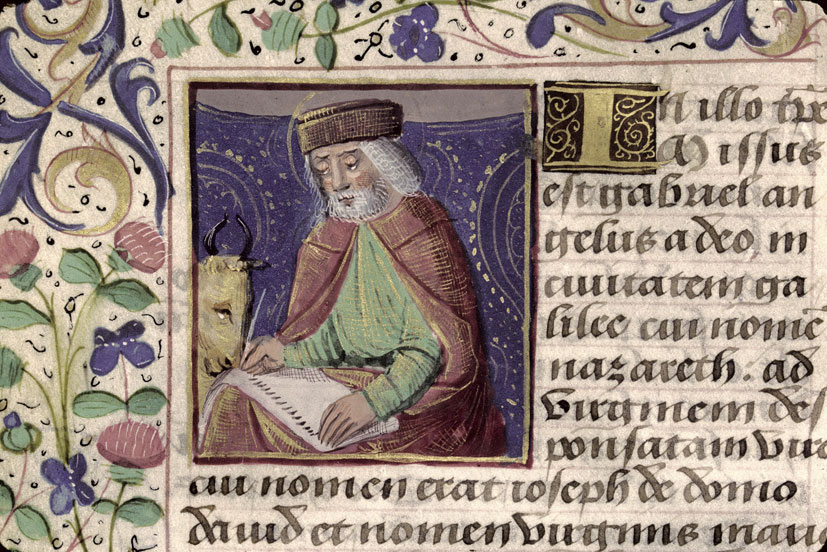 In illo tp̄e
Missus
est gabriel an
gelus a deo in
ciuitatem ga
lilee cui nomē
nazareth. ad
virginem des
ponsatam viro
cui nomen erat ioseph de domo
dauid et nomen virginis maria